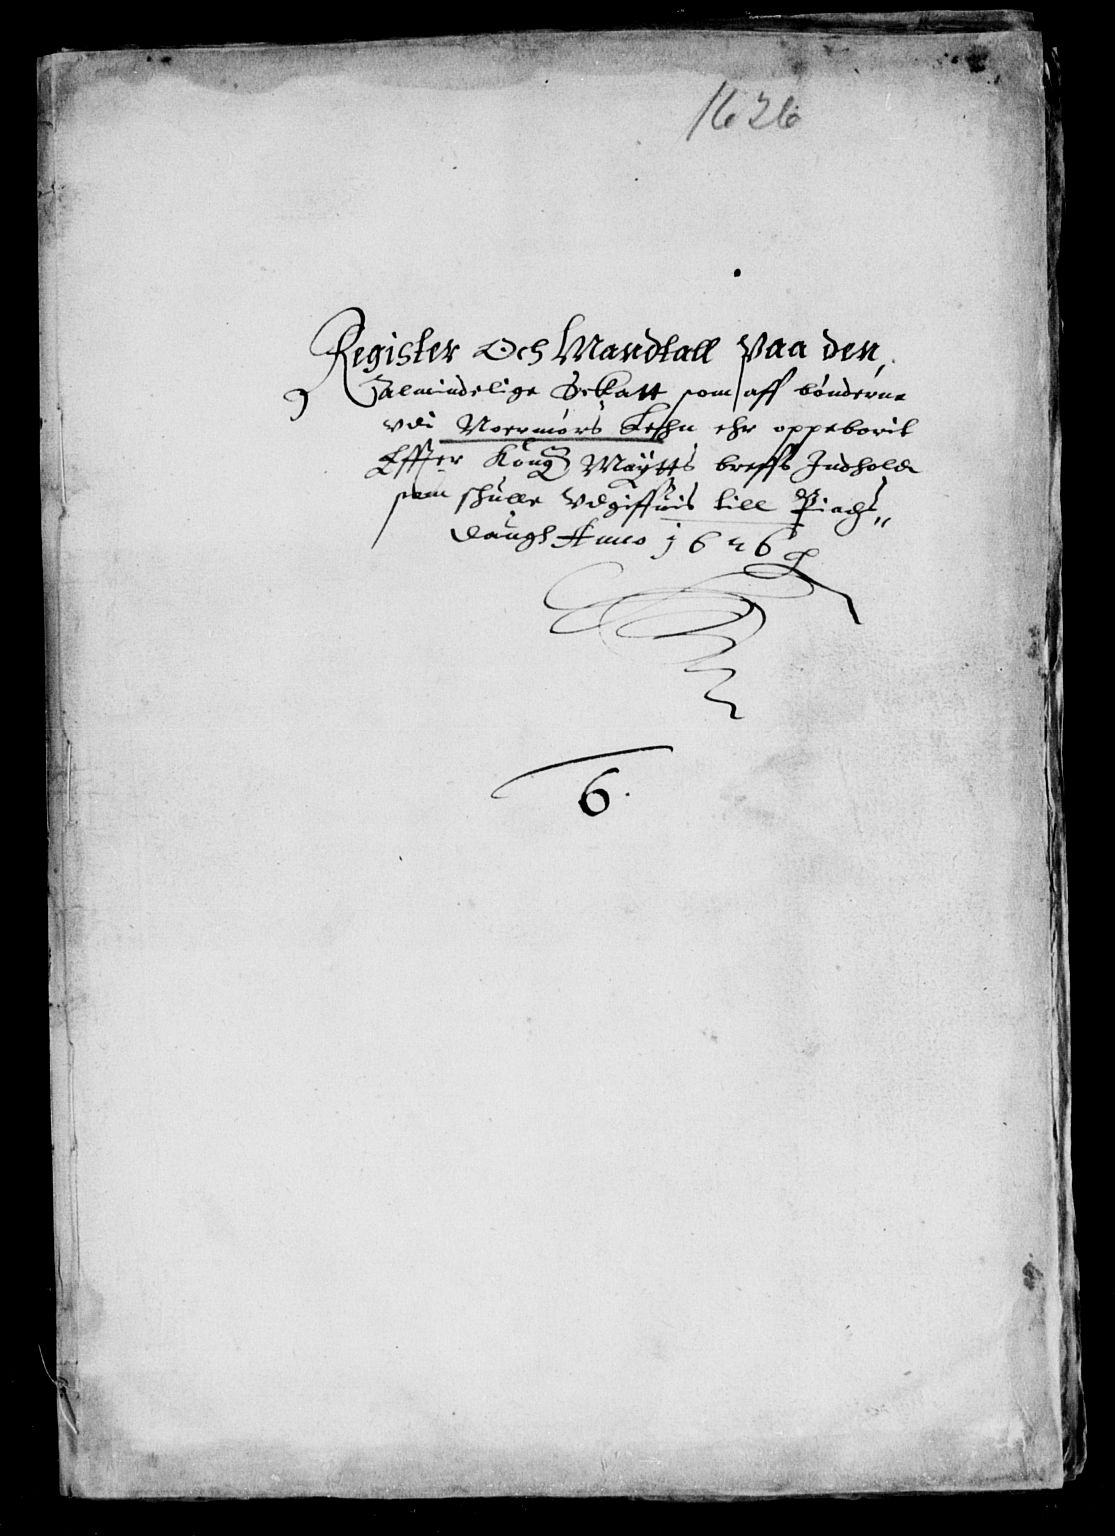 1626
Register Och Mandtall Paa den,
Ialmindelige Sckatt som aff bønderne
vdi Noermørs Lehn ehr oppeborit
Effter Kong Maÿtts breffs Indhold
som schulle Vdgiffuis till
daugh Anno 1626
6.